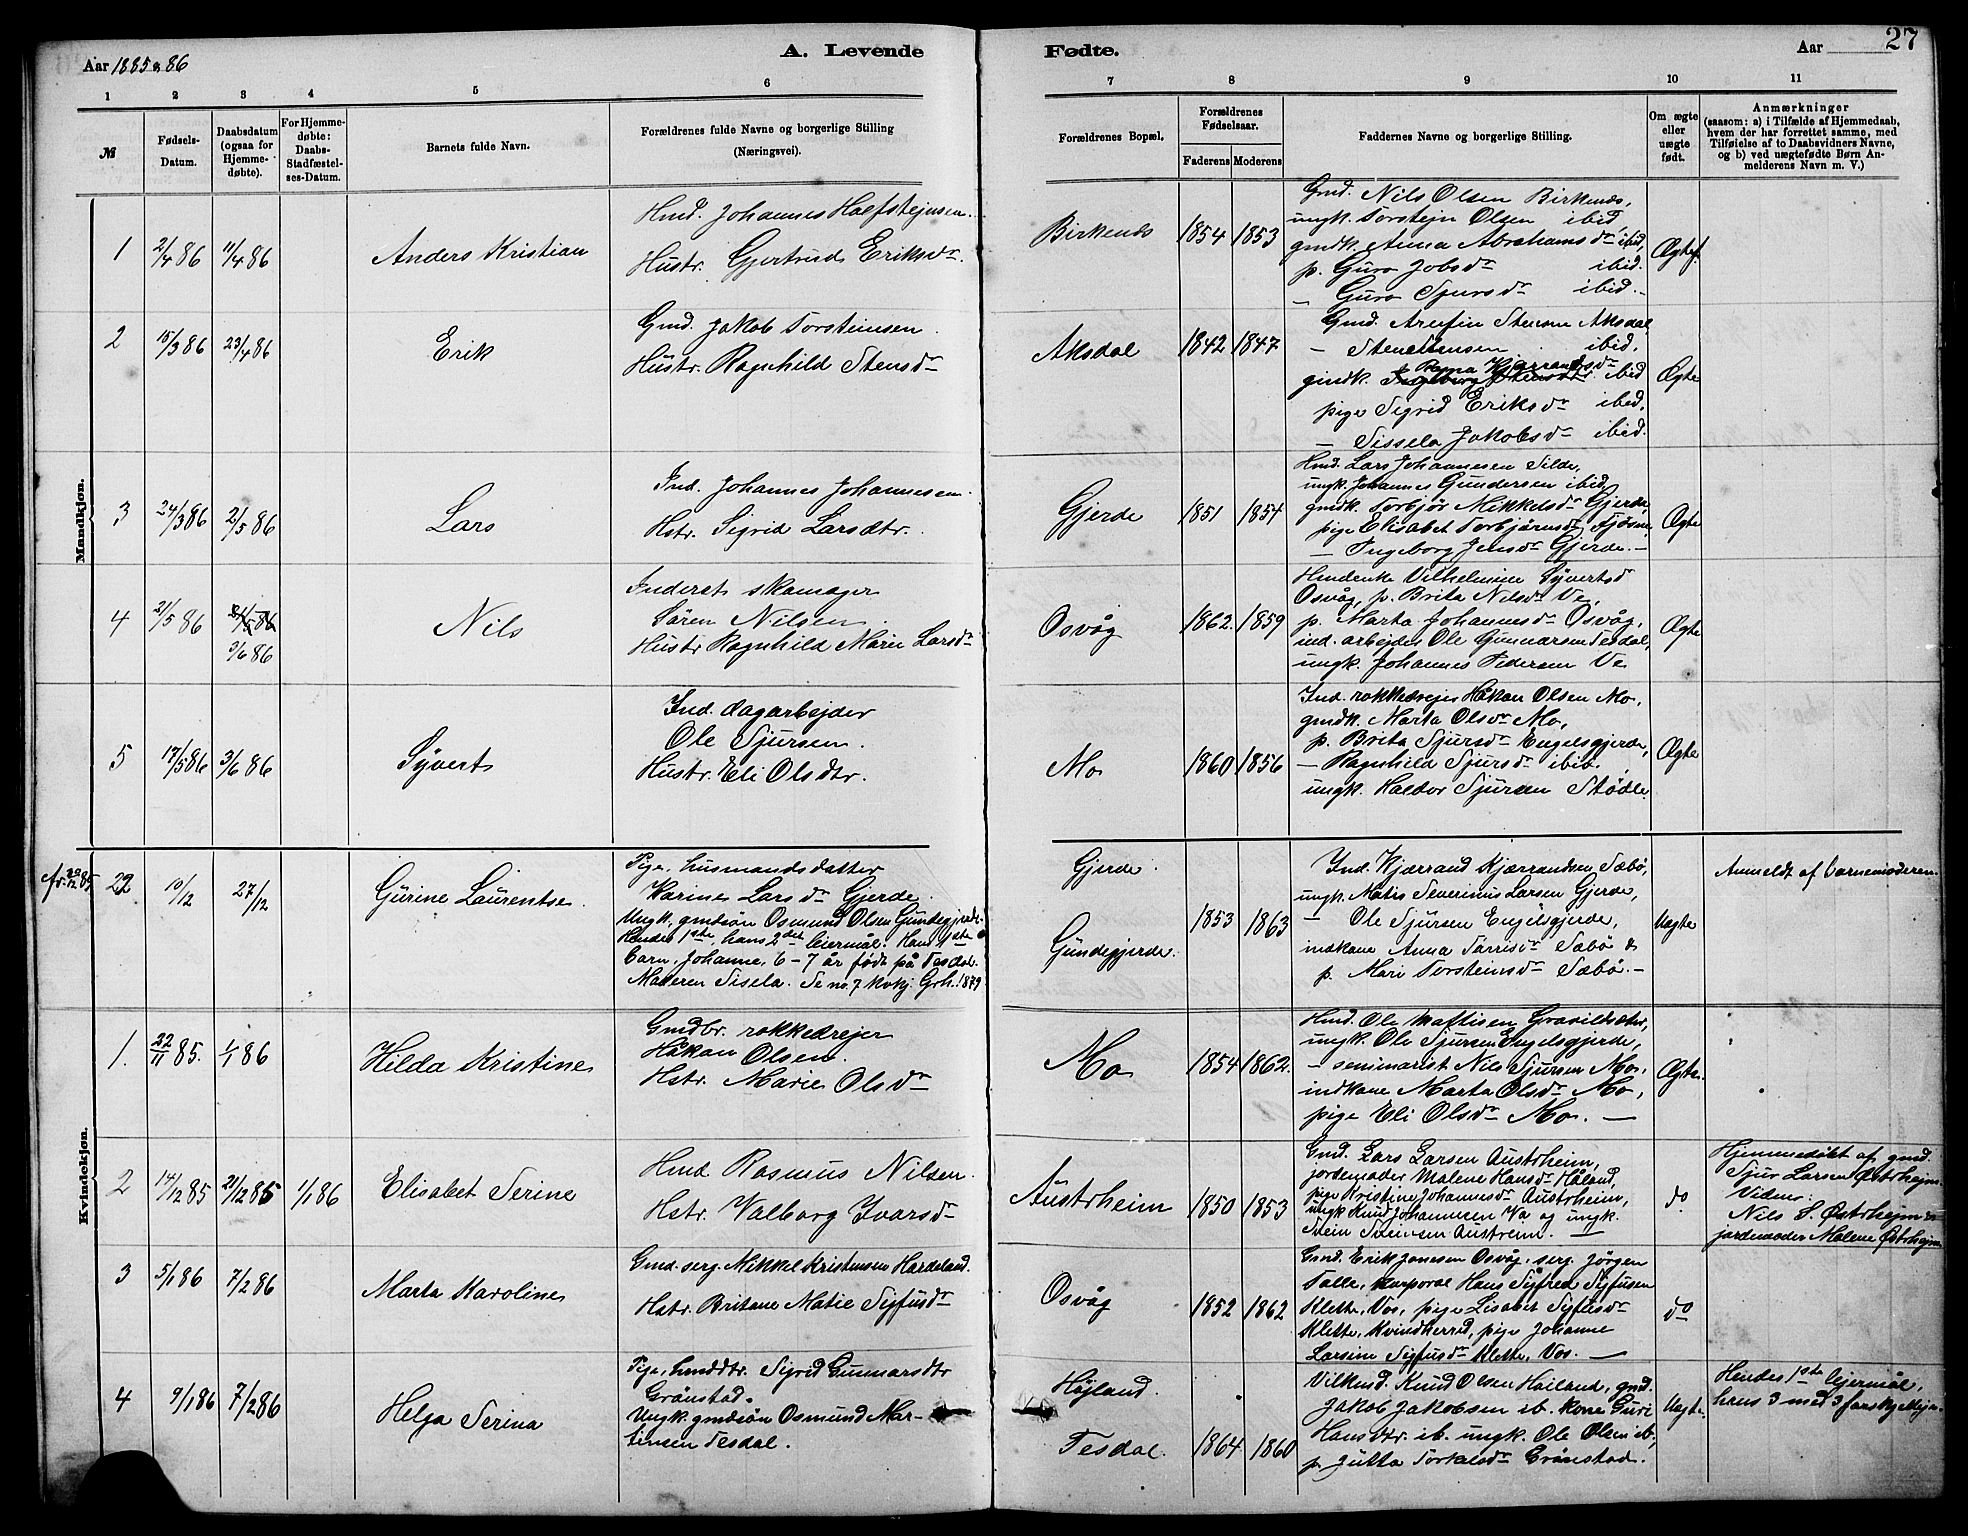 Aar 1885 & 86
A. Levende
Fødte.
Aar
27
1 2 3 4 5 6 7 8 9 10 11
№
Fødsels-
Datum.
Daabsdatum
(ogsaa for
Hjemme-
døbte).
For Hjemme-
døbte:
Daabs-
Stadfæstel-
ses-Datum.
Barnets fulde Navn.
Forældrenes fulde Navne og borgerlige Stilling
(Næringsvei).
Forældrenes Bopæl.
Forældrenes
Fødselsaar.
Faderens Moderens
Faddernes Navne og borgerlige Stilling.
Om ægte
eller
uægte
født.
Anmærkninger
(saasom: a) i Tilfælde af Hjemmedaab,
hvem der har forrettet samme, med
Tilføielse af to Daabsvidners Navne,
og b) ved uægtefødte Børn An-
melderens Navn m. V.)
Mandkjøn.
1
2/4 86
11/4 86
Anders Kristian
Hmd. Johannes Halfstejnsen.
Hustr. Gjertrud Eriksdr.
Birkenes
1854 1853
Gmd. Nils Olsen Birkenes,
ungk. Torstejn Olsen ibid
gmdk. Anna Abrahamsdr ibid,
p. Guro Jobsdr ibid.
– Guro Sjursdr ibid.
Ægtef.
2
15/3 86
23/4 86
Erik
Gmd. Jakob Torsteinsen
Hustr. Ragnhild Stensdr
Aksdal
1842 1847
Gmd. Arnfin Stensen Aksdal
– Sten Stensen ibid.
Ragna Kjærrandsdr
gmdk. Ingeborg Stensdtr. ibid
pige Sigrid Eriksdr ibid.
– Sissela Jakobsdr ibid.
Ægte
3
24/3 86
2/5 86
Lars
Ind. Johannes Johannesen.
Hstr. Sigrid Larsdtr.
Gjerde
1851 1854
Hmd. Lars Johannesen Silde,
ungk. Johannes Gundersen ibid,
gmdk. Torbjør Mikkelsdr Gjerde,
pige Elisabet Torbjørnsdr Fjøsne,
– Ingeborg Jensdr Gjerde. –
Ægte
4
21/5 86
31/5 86
3/6 86
Nils
Inderst skomager
Søren Nilsen.
Hustr Ragnhild Marie Larsdr
Osvåg
1862. 1859
Hmdenke Vilhelmine Syvertsd
Osvåg, p. Brita Nilsdr Ve,
p. Marta Johannesdr Osvåg,
ind. arbejder Ole Gunnarsen Tesdal,
ungk. Johannes Pedersen Ve
Ægte
5
17/5 86
3/6 86
Syvert
Ind. dagarbejder
Ole Sjursen.
Hustr. Eli Olsdtr.
Mo
1860 1856
Ind. rokkedrejer Håkan Olsen Mo,
gmdk. Marta Olsdr Mo,
p. Brita Sjursdr Engelsgjerde,
– Ragnhild Sjursdr ibid.
ungk. Haldor Sjursen Stødle.
Ægte
Kvindekjøn.
22
10/12
27/12
Gurine Laurentse
Pige, husmandsdatter
Karine Larsdr Gjerde.
Ungk. gmdsøn Osmund Olsen Gundegjerde.
Hendes 1ste, hans 2det leiermål. Hans 1ste
barn, Johanne, 6–7 år født på Tesdal.
Moderen Sisela. Se no. 7 kvkj. Grh. 1879
Gjerde.
Gundegjerde.
1853 1863
Ind. Kjærrand Kjærrandsen Sæbø,
ungk. Matis Severinus Larsen Gjerde,
– Ole Sjursen Engelsgjerde,
indkone Anna Tørrisdr Sæbø &
p. Mari Torsteinsdr Sæbø. –
Uægte
Anmeldt af barnemoderen.
1.
22/11 85.
1/1 86
Hilda Kristine
Gmdbr. rokkedrejer
Håkan Olsen.
Hstr. Marie Olsdr
Mo
1854 1862.
Hmd. Ole Mattisen Gravilsæter,
ungk. Ole Sjursen Engelsgjerde,
– seminarist Nils Sjursen Mo,
indkone Marta Olsdr Mo,
pige Eli Olsdr Mo. –
Ægte.
2
14/12 85
21/12 85
1/1 86
Elisabet Serine
Hmd. Rasmus Nilsen.
Hstr. Valborg Ivarsdr
Austrheim
1850 1853
Gmd. Lars Larsen Austrheim,
jordemoder Malene Hansdr Håland,
pige Kristine Johannesdr Austrheim,
ungk Knud Johannesen Va og ungk.
Svein Svensen Austreim. –
do
Hjemmedøbt af gmd.
Sjur Larsen Østrhejm.
Vidner:
Nils S. Østrhejm &
jordemoder Malene Østrhejm
3
5/1 86
7/2 86
Marta Karoline
Gmd. serg. Mikkel Kristensen Hardeland.
Hstr. Britane Matie Sigfusdr
Osvåg
1852 1862
Gmd. Erik Jonesen Osvåg, serg. Jørgen
Talle, korporal Hans Sigfred Sigfusen
Klette, Vos, pige Lisabet Sigfusdr
Klette, Kvindherred, pige Johanne
Larsine Sigfusdr Klette, Vos. –
do
4
9/1 86
7/2 86
Helga Serina
Pige, hmddtr. Sigrid Gunnarsdtr
Grønstad.
Ungk. gmdsøn Osmund Mar-
tinsen Tesdal.
Højland.
Tesdal.
1864 1860
Jakob Jakobsen ib. kone Guri
Hansdtr. ib. ungk. Ole Olsen ib.,
p. Jutta Torkelsdr Grønstad.
Uægte.
Hendes 1ste lejermål,
hans 3 med 3